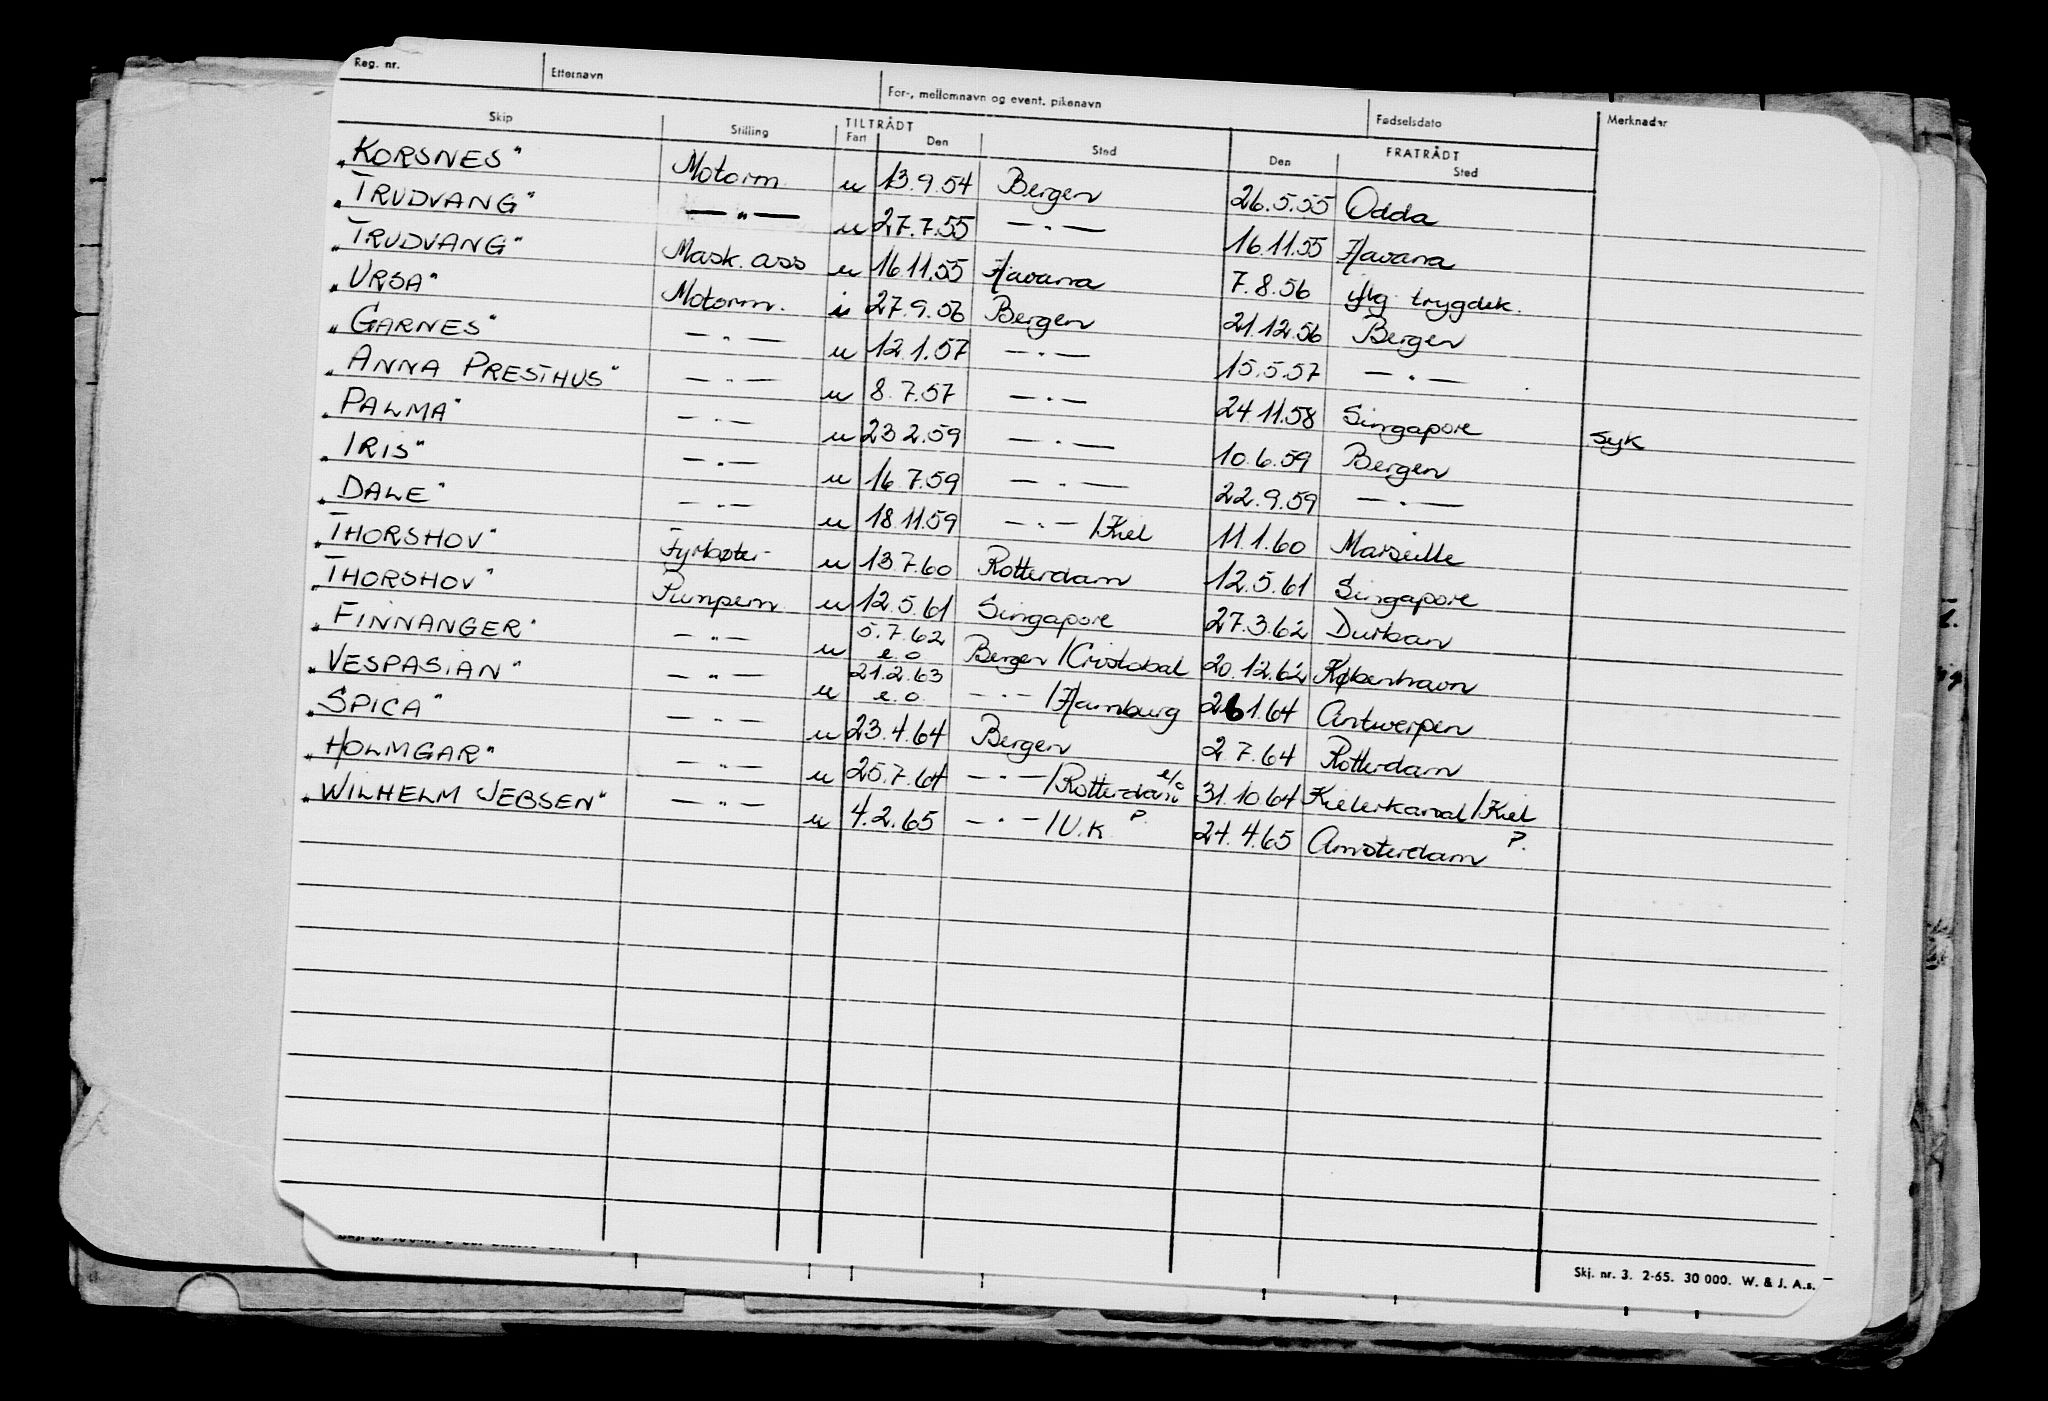 Reg. nr. Etternavn For-, mellomnavn og event. pikenavn Fødselsdato Merknader
Skip Stilling TILTRÅDT Fart Den Sted FRATRÅDT Den Sted
„KORSNES" Motorm. u 13.9.54 Bergen 26.5.55 Odda
„TRUDVANG" —"— u 27.7.55 —"— 16.11.55 Havana
„TRUDVANG" Mask. ass u 16.11.55 Havana 7.8.56 iflg. trygdek.
„URSA" Motorm. i 27.9.56 Bergen 21.12.56 Bergen
„GARNES" —"— u 12.1.57 —"— 15.5.57 —"—
„ANNA PRESTHUS" —"— u 8.7.57 —"— 24.11.58 Singapore syk
„PALMA" —"— u 23.2.59 —"— 10.6.59 Bergen
„IRIS" —"— u 16.7.59 —"— 22.9.59 —"—
„DALE" —"— u 18.11.59 —"— /Kiel 11.1.60 Marseille
„THORSHOV" Fyrbøter u 13.7.60 Rotterdam 12.5.61 Singapore
„THORSHOV" Pumpem u 12.5.61 Singapore 27.3.62 Durban
„FINNANGER" —"— u 5.7.62 e.o Bergen/Cristobal 20.12.62 København
„VESPASIAN" —"— u 21.2.63 e.o. —"— /Hamburg 26.1.64 Antwerpen
„SPICA" —"— u 23.4.64 Bergen 2.7.64 Rotterdam
„HOLMGAR" —"— u 25.7.64 —"— /Rotterdam e/o 31.10.64 Kielerkanal/Kiel
„WILHELM JEBSEN" —"— u 4.2.65 —"— /U.K. P. 24.4.65 Amsterdam P.
Skj. nr. 3. 2-65. 30 000. W. & J. A.s.